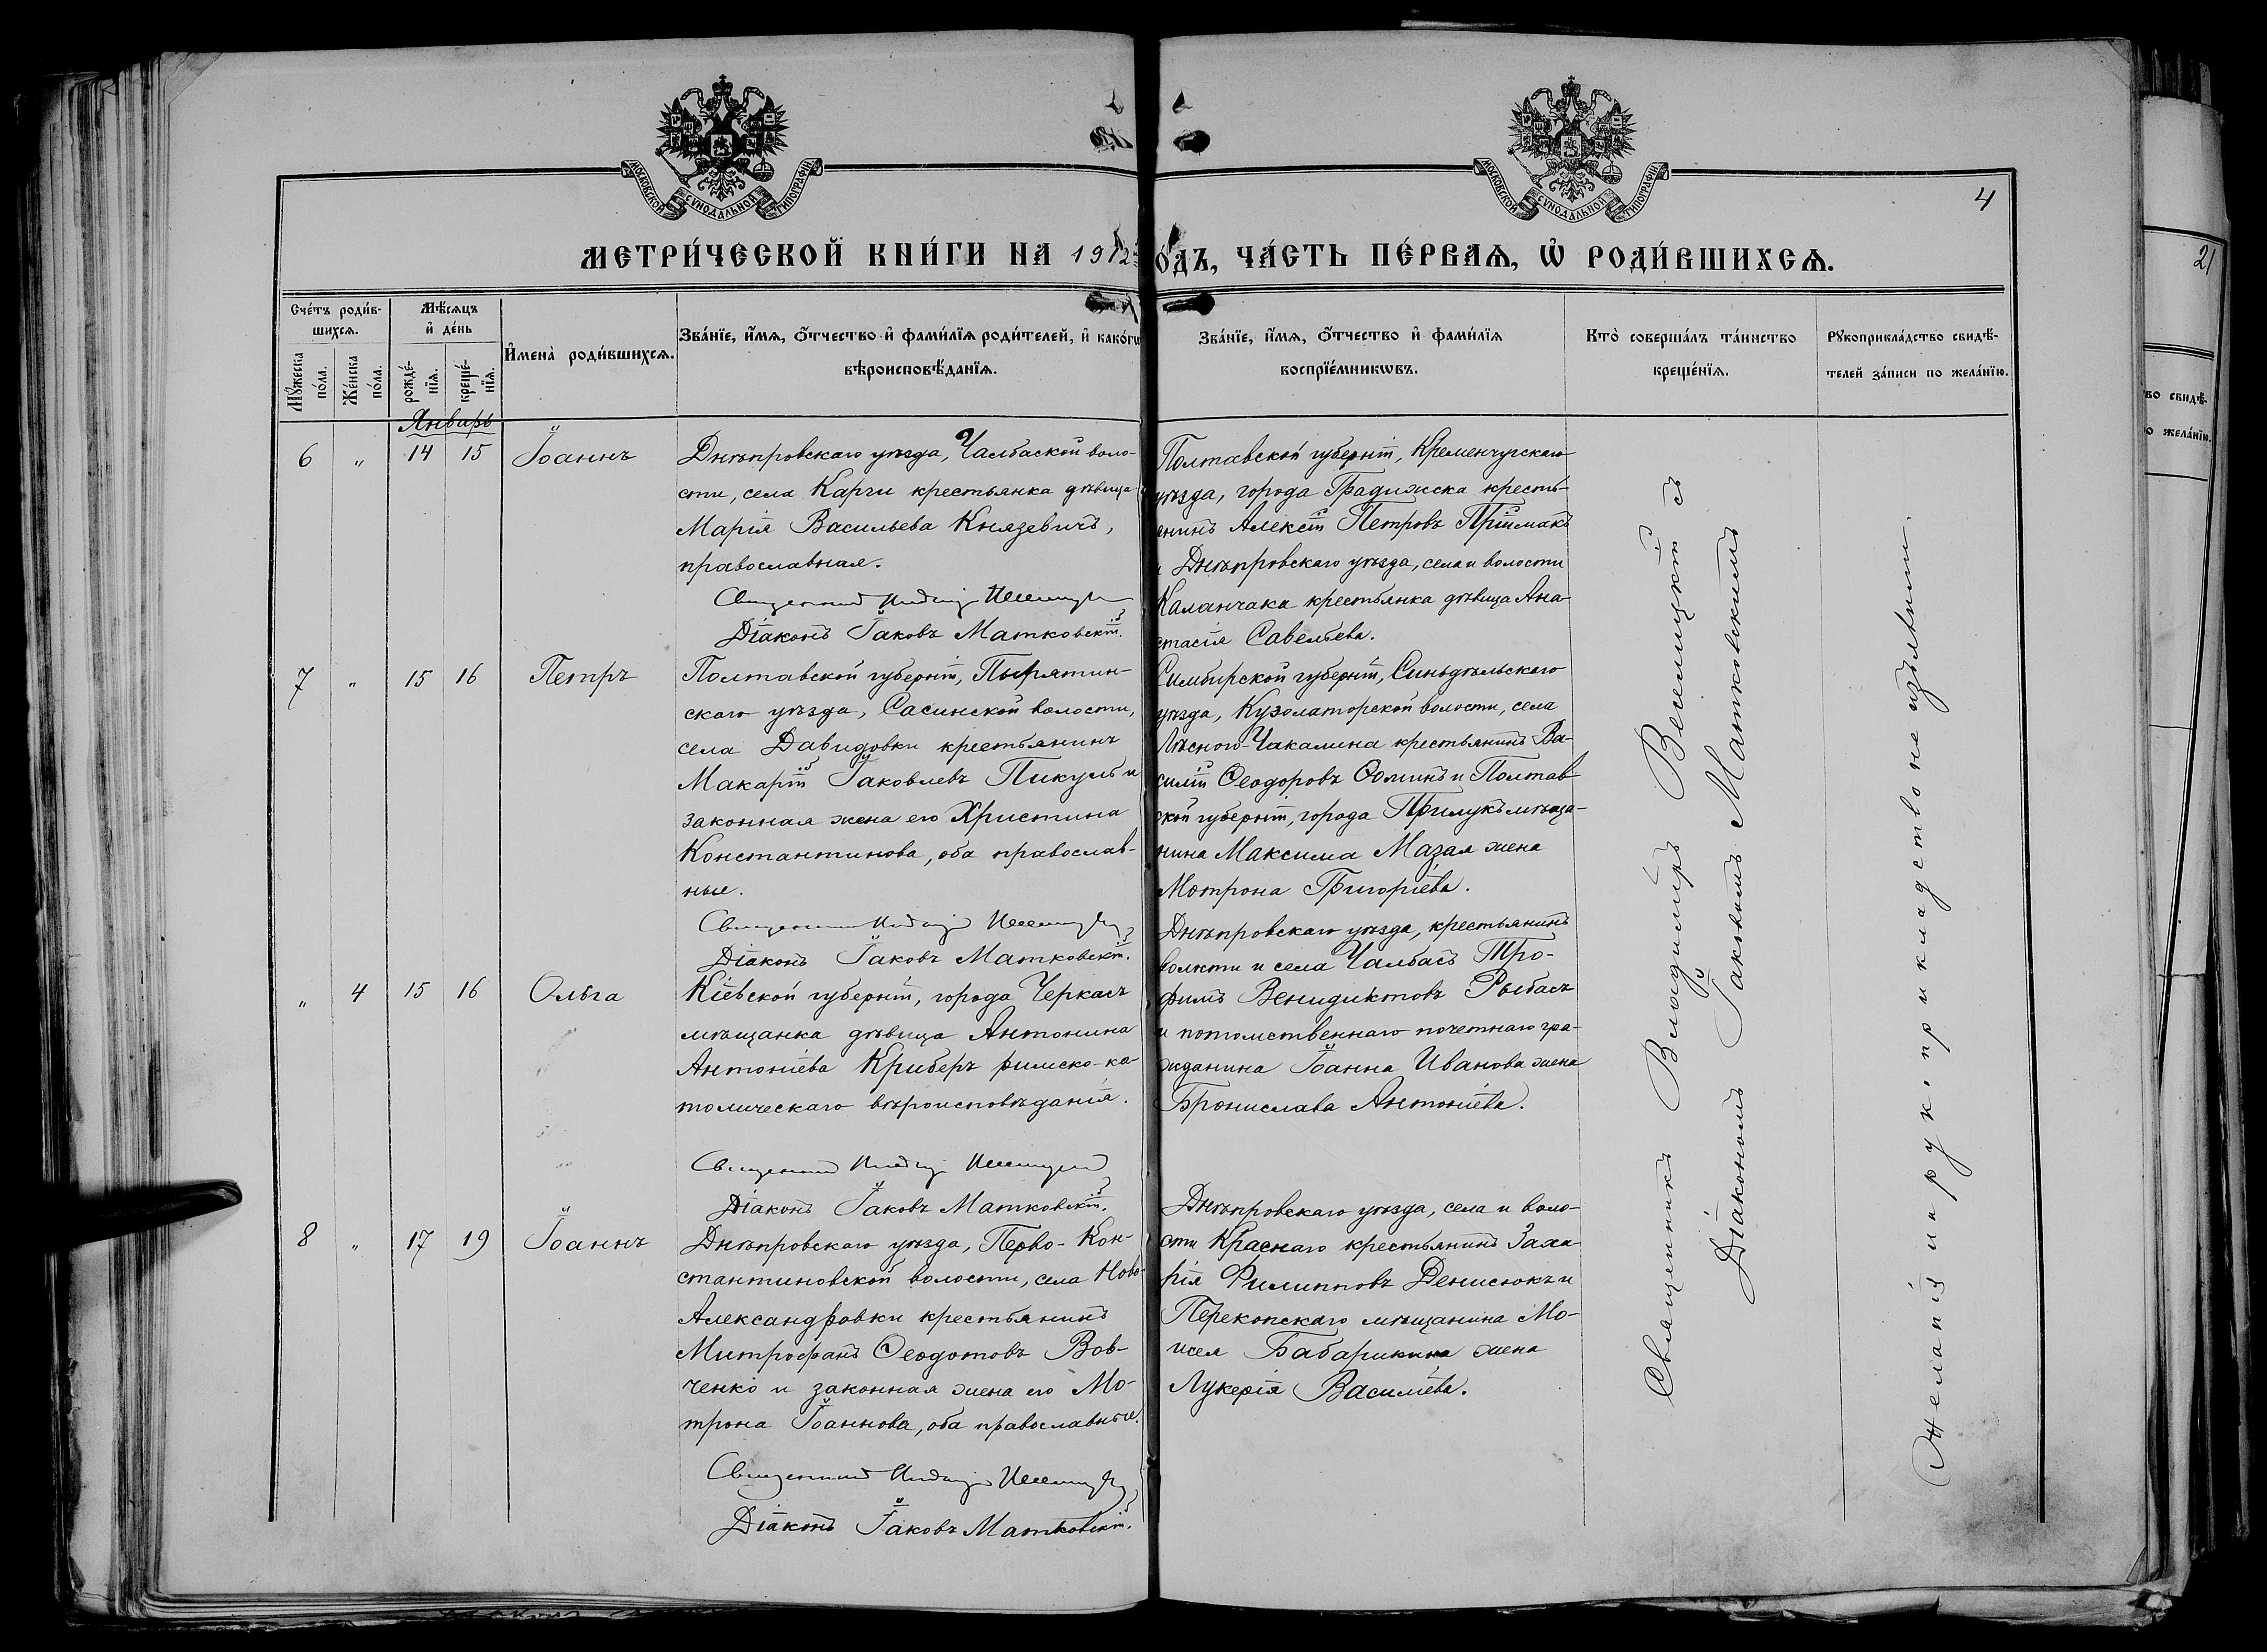 МОСКОВСКОЙ СѴНОДАЛЬНОЙ ТИПОГРАФІИ
МОСКОВСКОЙ СѴНОДАЛЬНОЙ ТИПОГРАФІИ
4
МЕТРИ́ЧЕСКОЙ КНИ́ГИ НА 1912 О́ДЪ, ЧА́СТЬ ПЕ́РВАѦ, Ѡ҆ РОДИ́ВШИХСѦ.
21
Сче́тъ роди́в-
шихсѧ.
Мꙋ́жеска
по́ла.
Же́нска
по́ла.
Мѣ́сѧцъ
и҆ де́нь
рожде́-
нїѧ.
креще́-
нїѧ.
И҆мена̀ роди́вшихсѧ.
Зва́нїе, и҆́мѧ, ѻ҆́тчество и҆ фами́лїѧ роди́телей, и҆ како́гѡ
вѣроисповѣ́данїѧ.
Зва́нїе, и҆́мѧ, ѻ҆́тчество и҆ фами́лїѧ
воспрїе́мникѡвъ.
Кто̀ соверша́лъ та́инство
креще́нїѧ.
Рꙋкоприкла́дство свидѣ́-
телей за́писи по жела́нїю.
во свидѣ́-
о жела́нїю.
Январь
6 " 14 15 Іоаннъ
Днѣпровскаго уѣзда, Чалбаской воло-
сти, села Карги крестьянка дѣвица
Марія Васильева Князевичъ,
православная.
Священникъ
Діаконъ Іаковъ Матковскій.
Полтавской губерніи, Кременчугскаго
уѣзда, города Градижска кресть-
янинъ Алексій Петровъ Пріймакъ
и Днѣпровскаго уѣзда, села и волости
Каланчака крестьянка дѣвица Ана-
стасія Савельева.
7 " 15 16 Петръ
Полтавской губерніи, Пырятин-
скаго уѣзда, Сасинской волости,
села Давидовки крестьянинъ
Макарій Іаковлевъ Пикуль и
законная жена его Христина
Константинова, оба православ-
ные.
Священникъ
Діаконъ Іаковъ Матковскій.
Симбирской губерніи, Синьдѣльскаго
уѣзда, Кузоматорской волости, села
Лѣсного-Чакалина крестьянинъ Ва-
силій Ѳеодоровъ Ѳоминъ и Полтав
ской губерніи, города Прилукъ мѣща-
нина Максима Мазая жена
Мотрона Григоріева.
" 4 15 16 Ольга
Кіевской губерніи, города Черкасъ
мѣщанка дѣвица Антонина
Антоніева Криберъ римско-ка
толическаго вѣроисповѣданія.
Священникъ
Діаконъ Іаковъ Матковскій.
Днѣпровскаго уѣзда, крестьянинъ
волсти и села Чалбасъ Тро-
фимъ Венидиктовъ Рыбасъ
и потомственнаго почетнаго гра-
жданина Іоанна Иванова жена
Бронислава Антоніева.
8 " 17 19 Іоаннъ
Днѣпровскаго уѣзда, Перво-Кон-
стантиновской волости, села Ново-
Александровки крестьянинъ
Митрофанъ Ѳеодотовъ Вов-
ченко и законная жена его Мо-
трона Іоаннова, оба православные.
Священникъ
Діаконъ Іаковъ Матковскій.
Днѣпровскаго уѣзда, села и воло-
сти Краснаго крестьянинъ Заха-
рія Филипповъ Денисюкъ и
Перекопскаго мѣщанина Мо-
исея Бабарикина жена
Лукерія Василіева.
Священникъ Владиміръ Веселицкій съ
Діакономъ Іаковомъ Матковскимъ
Желанія на рукоприкладство не изъявили.